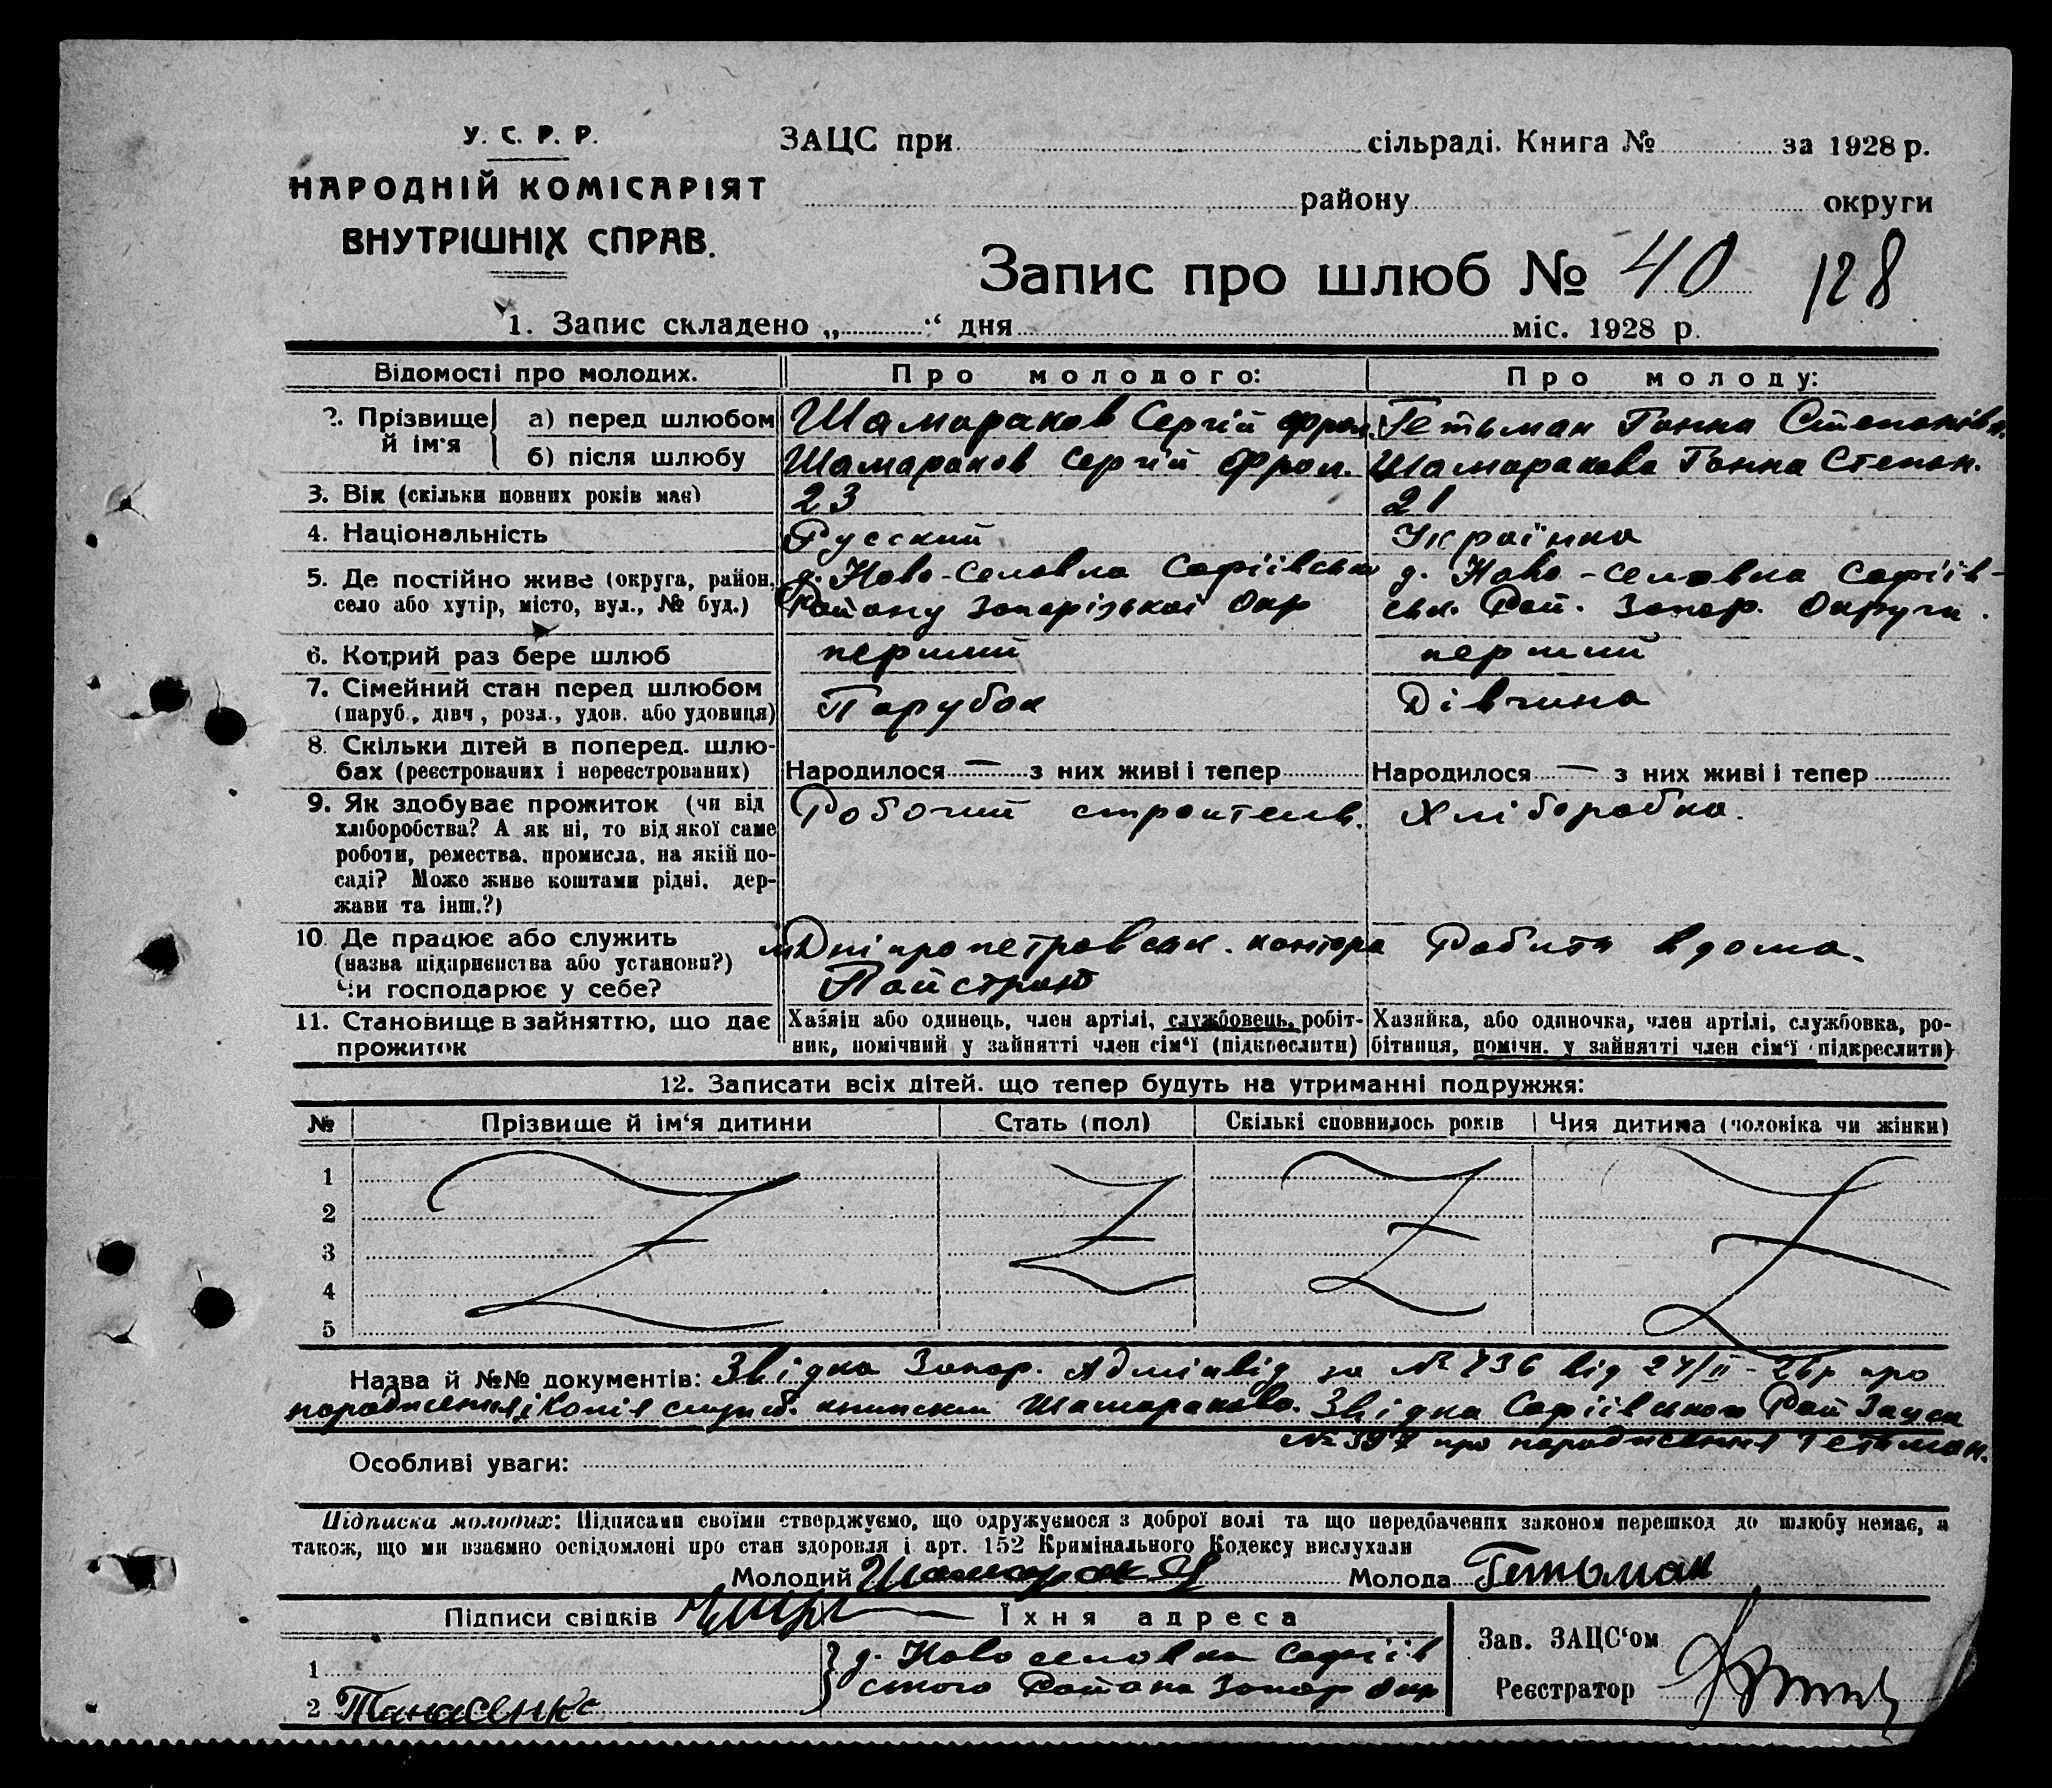 У. С. Р. Р.
НАРОДНІЙ КОМІСАРІЯТ
ВНУТРІШНІХ СПРАВ.
ЗАЦС при сільраді. Книга № за 1928 р.
району округи
Запис про шлюб № 40 128
1. Запис складено „ “ дня міс. 1928 р.
Відомості про молодих. Про молодого: Про молоду:
2. Прізвище й ім'я а) перед шлюбом Шамараков Сергій Фрол. Гетьман Ганна Степанівн.
б) після шлюбу Шамараков Сергій Фрол. Шамаракова Ганна Степан.
3. Вік (скільки повних років має) 23 21
4. Національність Русский Українка
5. Де постійно живе (округа, район, д. Ново-Селовка Софіївськ д. Ново-селовка Софіїв-
село або хутір, місто, вул., № буд.) Району Запорізької Окр ськ. Рай. Запор. Округи.
6. Котрий раз бере шлюб перший перший
7. Сімейний стан перед шлюбом Парубок Дівчина
(паруб., дівч., розл., удов. або удовиця)
8. Скільки дітей в поперед. шлю-
бах (реєстрованих і нереєстрованих) Народилося — з них живі і тепер Народилося — з них живі і тепер
9. Як здобуває прожиток (чи від Робочий строитель. Хліборобка.
хліборобства? А як ні, то від якої саме
роботи, ремества, промисла, на якій по-
саді? Може живе коштами рідні, дер-
жави та інш.?)
10. Де працює або служить Дніпропетровськ. контора Робить вдома.
(назва підприємства або установи?) Пайстрою
Чи господарює у себе?
11. Становище в зайняттю, що дає Хазяїн або одинець, член артілі, службовець, робіт- Хазяйка, або одиночка, член артілі, службовка, ро-
прожиток ник, помічний у зайнятті член сім'ї (підкреслити) бітниця, помічн. у зайнятті член сім'ї (підкреслити)
12. Записати всіх дітей, що тепер будуть на утриманні подружжя:
№ Прізвище й ім'я дитини Стать (пол) Скількі сповнилось років Чия дитина (чоловіка чи жінки)
1
2
3
4
5
Назва й №№ документів: Звідка Запор. Адмінвід за № 736 від 24/II-26р про
народження, і копія служб. книжки Шамаракова. Звідка Софіївського Рай Зацса
№ 397 про народження Гетьман.
Особливі уваги:
Підписка молодих: Підписами своїми стверджуємо, що одружуємося з доброї волі та що передбачених законом перешкод до шлюбу немає, а
також, що ми взаємно освідомлені про стан здоровля і арт. 152 Кримінального Кодексу вислухали
Молодий Шамараков Молода Гетьман
Підписи свідків Їхня адреса
Зав. ЗАЦС'ом
1 д. Ново селовка Софіїв
2 Танасенко ського Района Запор Окр
Реєстратор